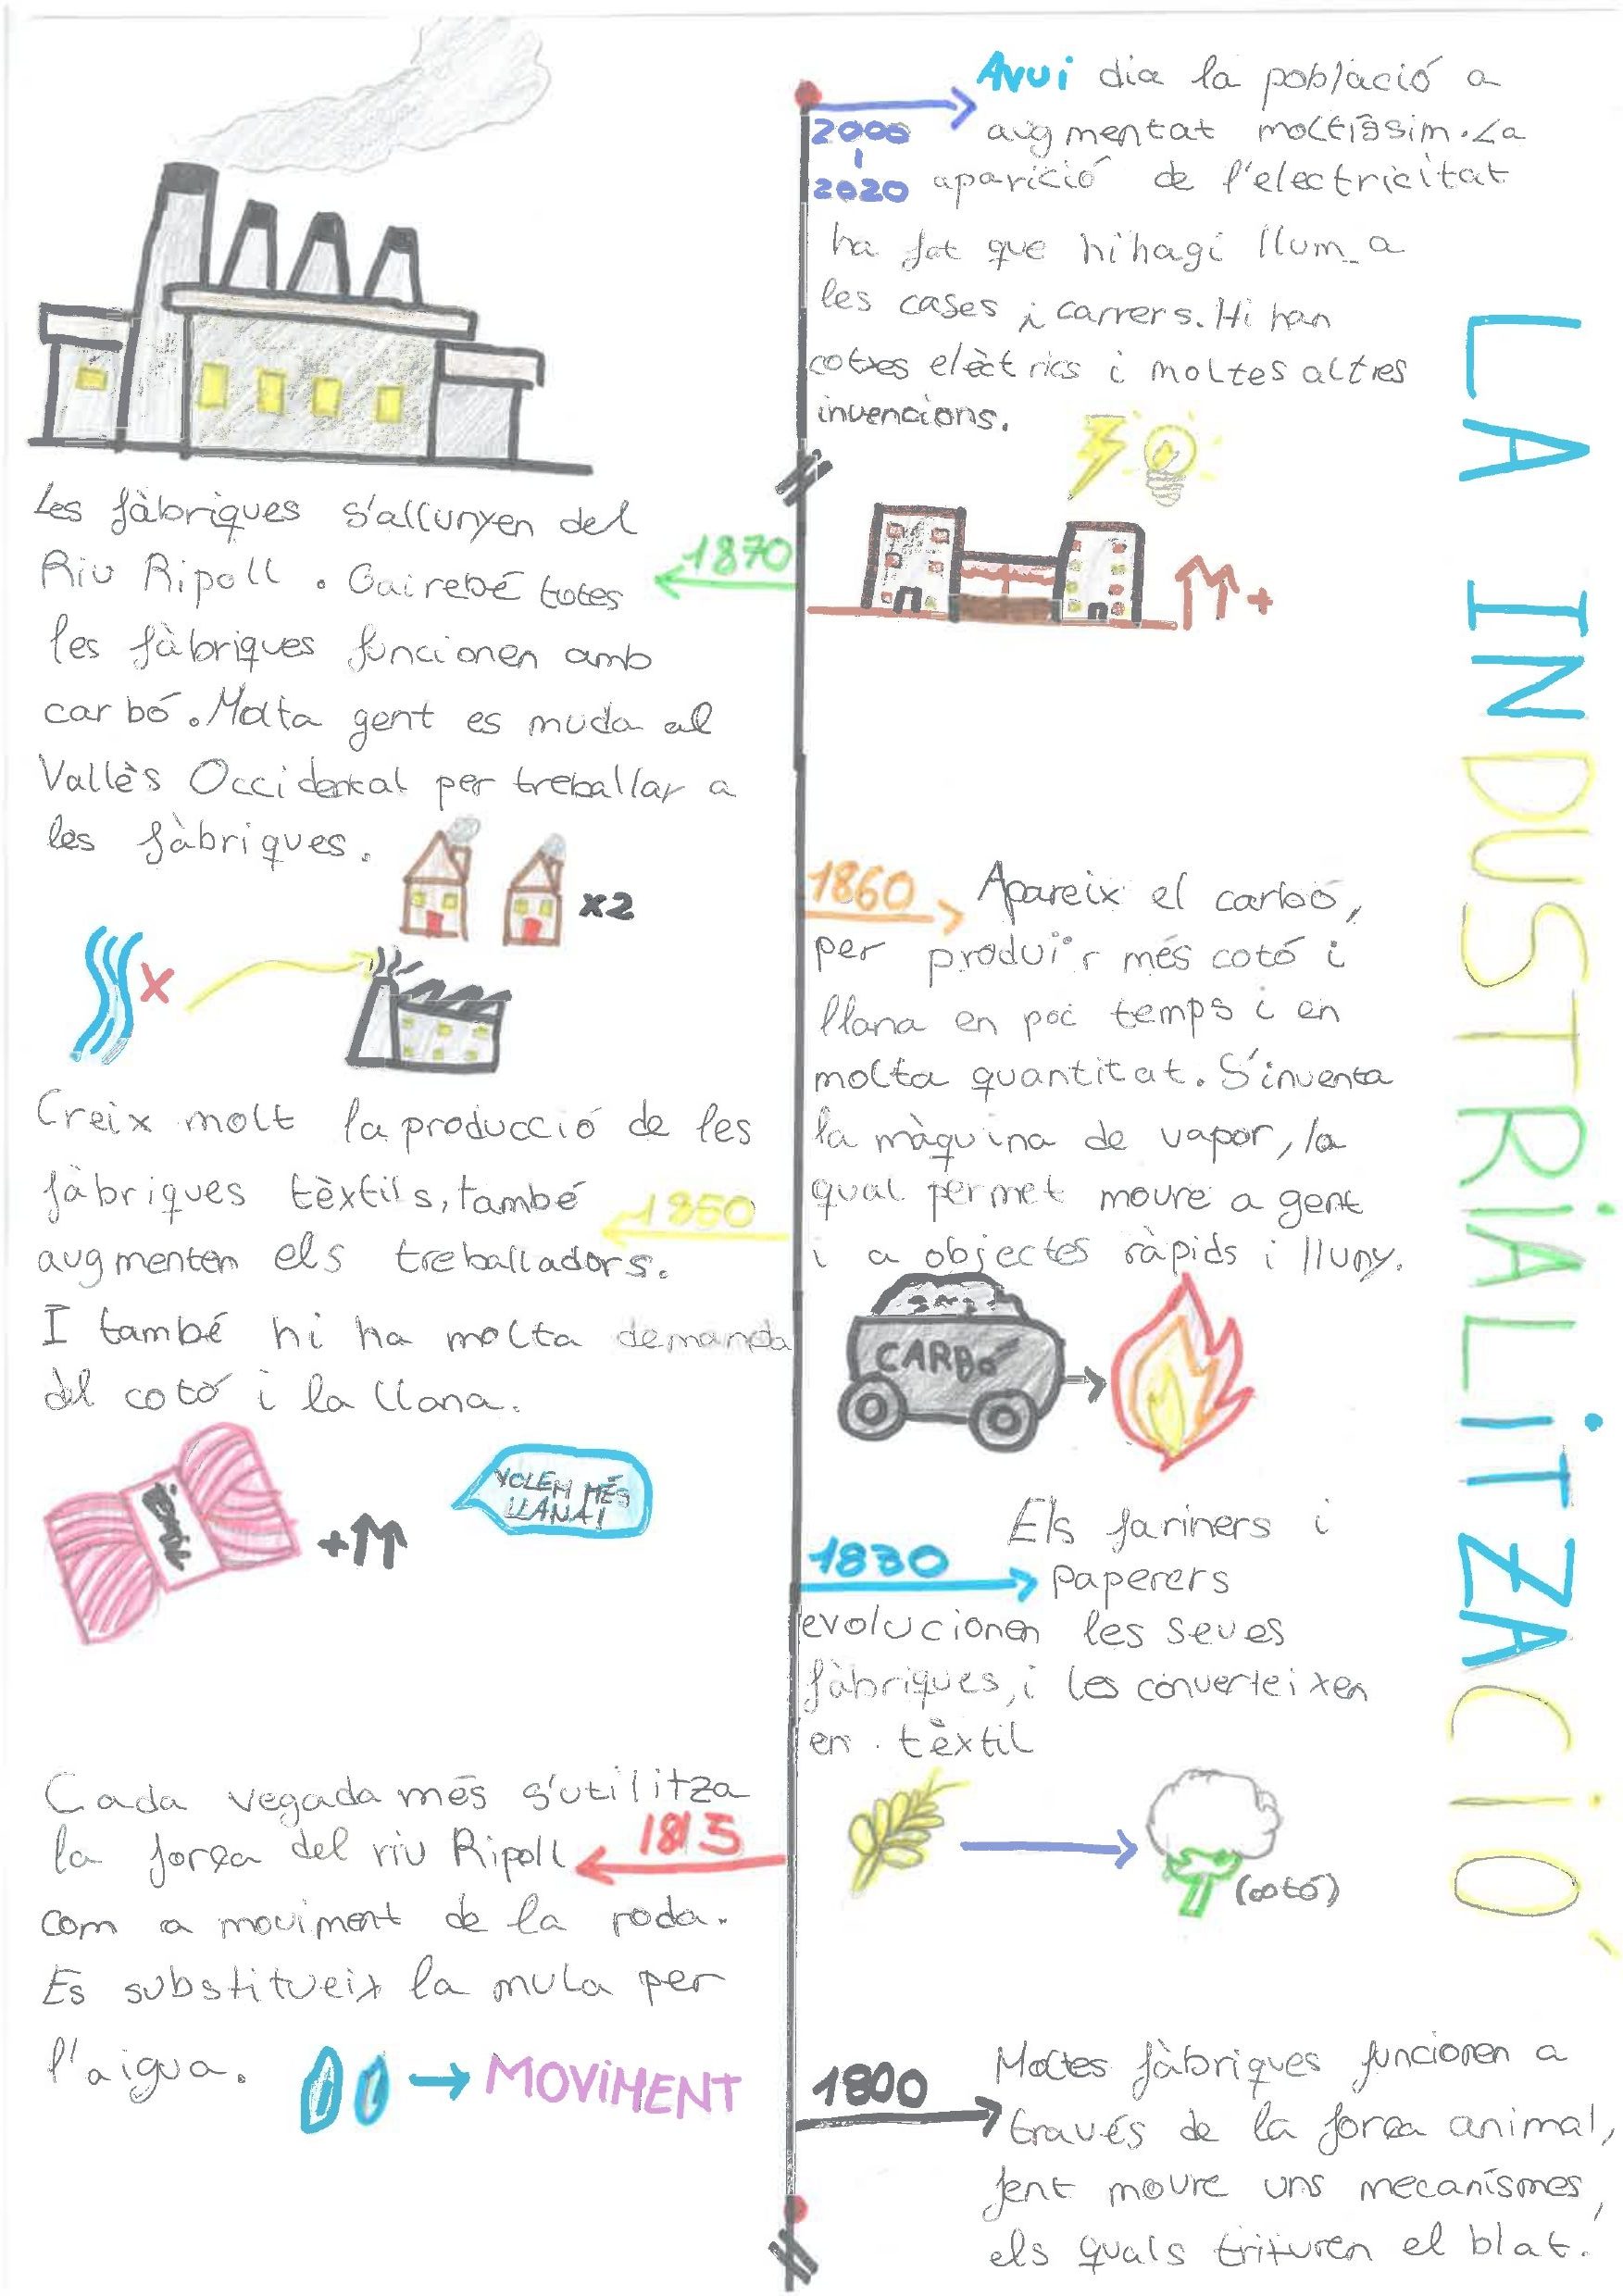 LA INDUSTRIALITZACIÓ
Avui dia la població a
2000
augmentat moltíssim. La
2020
aparició de l'electricitat
ha fet que hihagi llum a
les cases i carrers. Hi han
cotxes elèctrics i moltes altres
invencions.
1870
Les fàbriques s'allunyen del
Riu Ripoll. Gairebé totes
les fàbriques funcionen amb
carbó. Molta gent es muda al
Vallès Occidental per treballar a
les fàbriques.
x2
x
1860
Apareix el carbó,
per produïr més cotó i
llana en poc temps i en
molta quantitat. S'inventa
la màquina de vapor, la
qual permet moure a gent
i a objectes ràpids i lluny.
CARBó
1850
Creix molt la producció de les
fàbriques tèxtils, també
augmenten els treballadors.
I també hi ha molta demanda
del cotó i la llana.
+
VOLEM MÉS
LLANA!
1830
Els fariners i
paperers
evolucionen les seves
fàbriques, i les converteixen
en tèxtil
(cotó)
1815
Cada vegada més s'utilitza
la força del riu Ripoll
com a moviment de la roda.
Es substitueix la mula per
l'aigua.
MOViMENT
1800
Moltes fàbriques funcionen a
través de la força animal,
fent moure uns mecanísmes,
els quals trituren el blat.